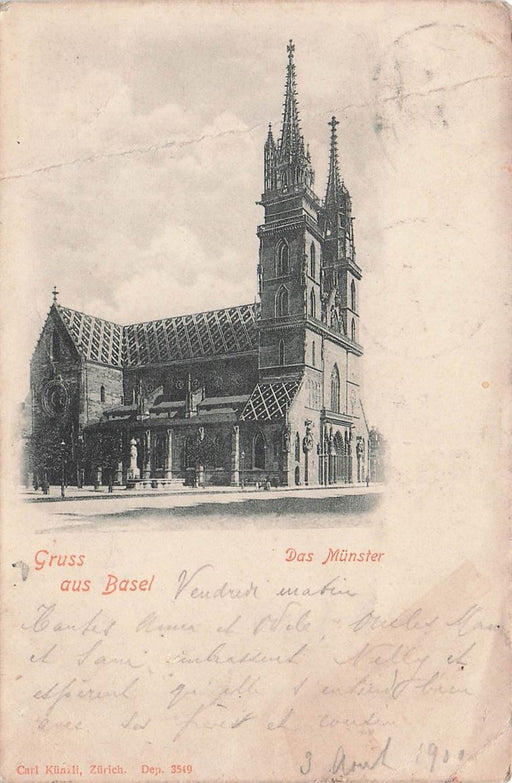 Gruss
aus Basel
Das Münster
Vendredi matin
Tantes Anna et Odile, Oncles
et Sami embrassent Nelly et
espèrent qu'elle s'entend bien
avec ses frères et cousin
3 Août 1900
Carl Künzli, Zürich. Dep. 3549